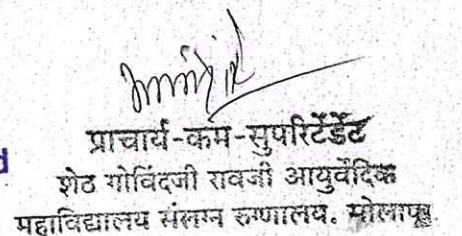 प्राचार्य-कम-सुपरिटेंडेंट
d
शेठ गोविंदजी रावजी आयुर्वेदिक
महाविद्यालय संलग्न रुग्णालय. सोलापूर